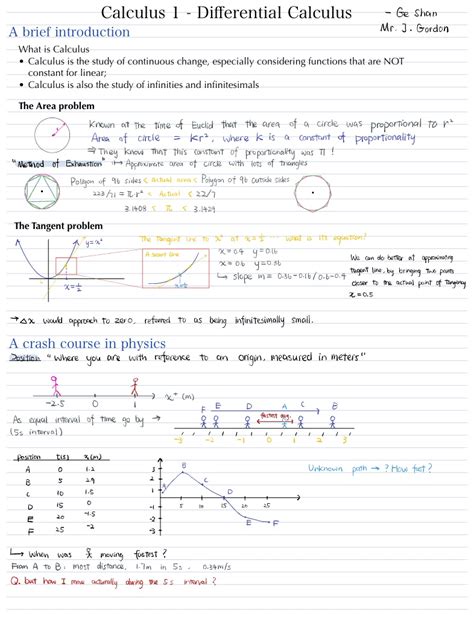 Calculus 1 - Differential Calculus
- Ge Shan
Mr. J. Gordon
A brief introduction
What is Calculus
• Calculus is the study of continuous change, especially considering functions that are NOT
constant for linear;
• Calculus is also the study of infinities and infinitesimals
The Area problem
Known at the time of Euclid that the area of a circle was proportional to r²
Area of circle = kr², where k is a constant of proportionality
→ They know that this constant of proportionality was π !
"Method of Exhaustion" → Approximate area of circle with lots of triangles
Polygon of 96 sides < Actual area < Polygon of 96 outside sides
223/71 < Actual < 22/7
3.1408 ≤ π ≤ 3.1429
The Tangent problem
The tangent line to x² at x=½ ... what is its equation!
y=x²
x=½
A secant line
x=½
x=0.4 y=0.16
x=0.6 y=0.36
↳ slope m = 0.36-0.16/0.6-0.4
We can do better at approximating
tangent line, by bringing two points
closer to the actual point of Tangency
x=0.5
→ Δx would approach to zero, referred to as being infinitesimally small.
A crash course in physics
Position "Where you are with reference to an origin, measured in meters"
-2.5 0 1 x+ (m)
As equal interval of time go by →
(5s interval)
F E D A C B
fastest avg.
-3 -2 -1 0 1 2 3
Position t(s) x(m)
A 0 1.2
B 5 2.9
C 10 1.5
D 15 0
E 20 -1.5
F 25 -2
3
2
1
0
-1
-2
-3
A B C D E F
5 10 15 20 25
Unknown path → ? How fast?
↳ When was moving fastest ?
From A to B : most distance, 1.7m in 5s. 0.34m/s
Q. but how I move actually during the 5s interval ?